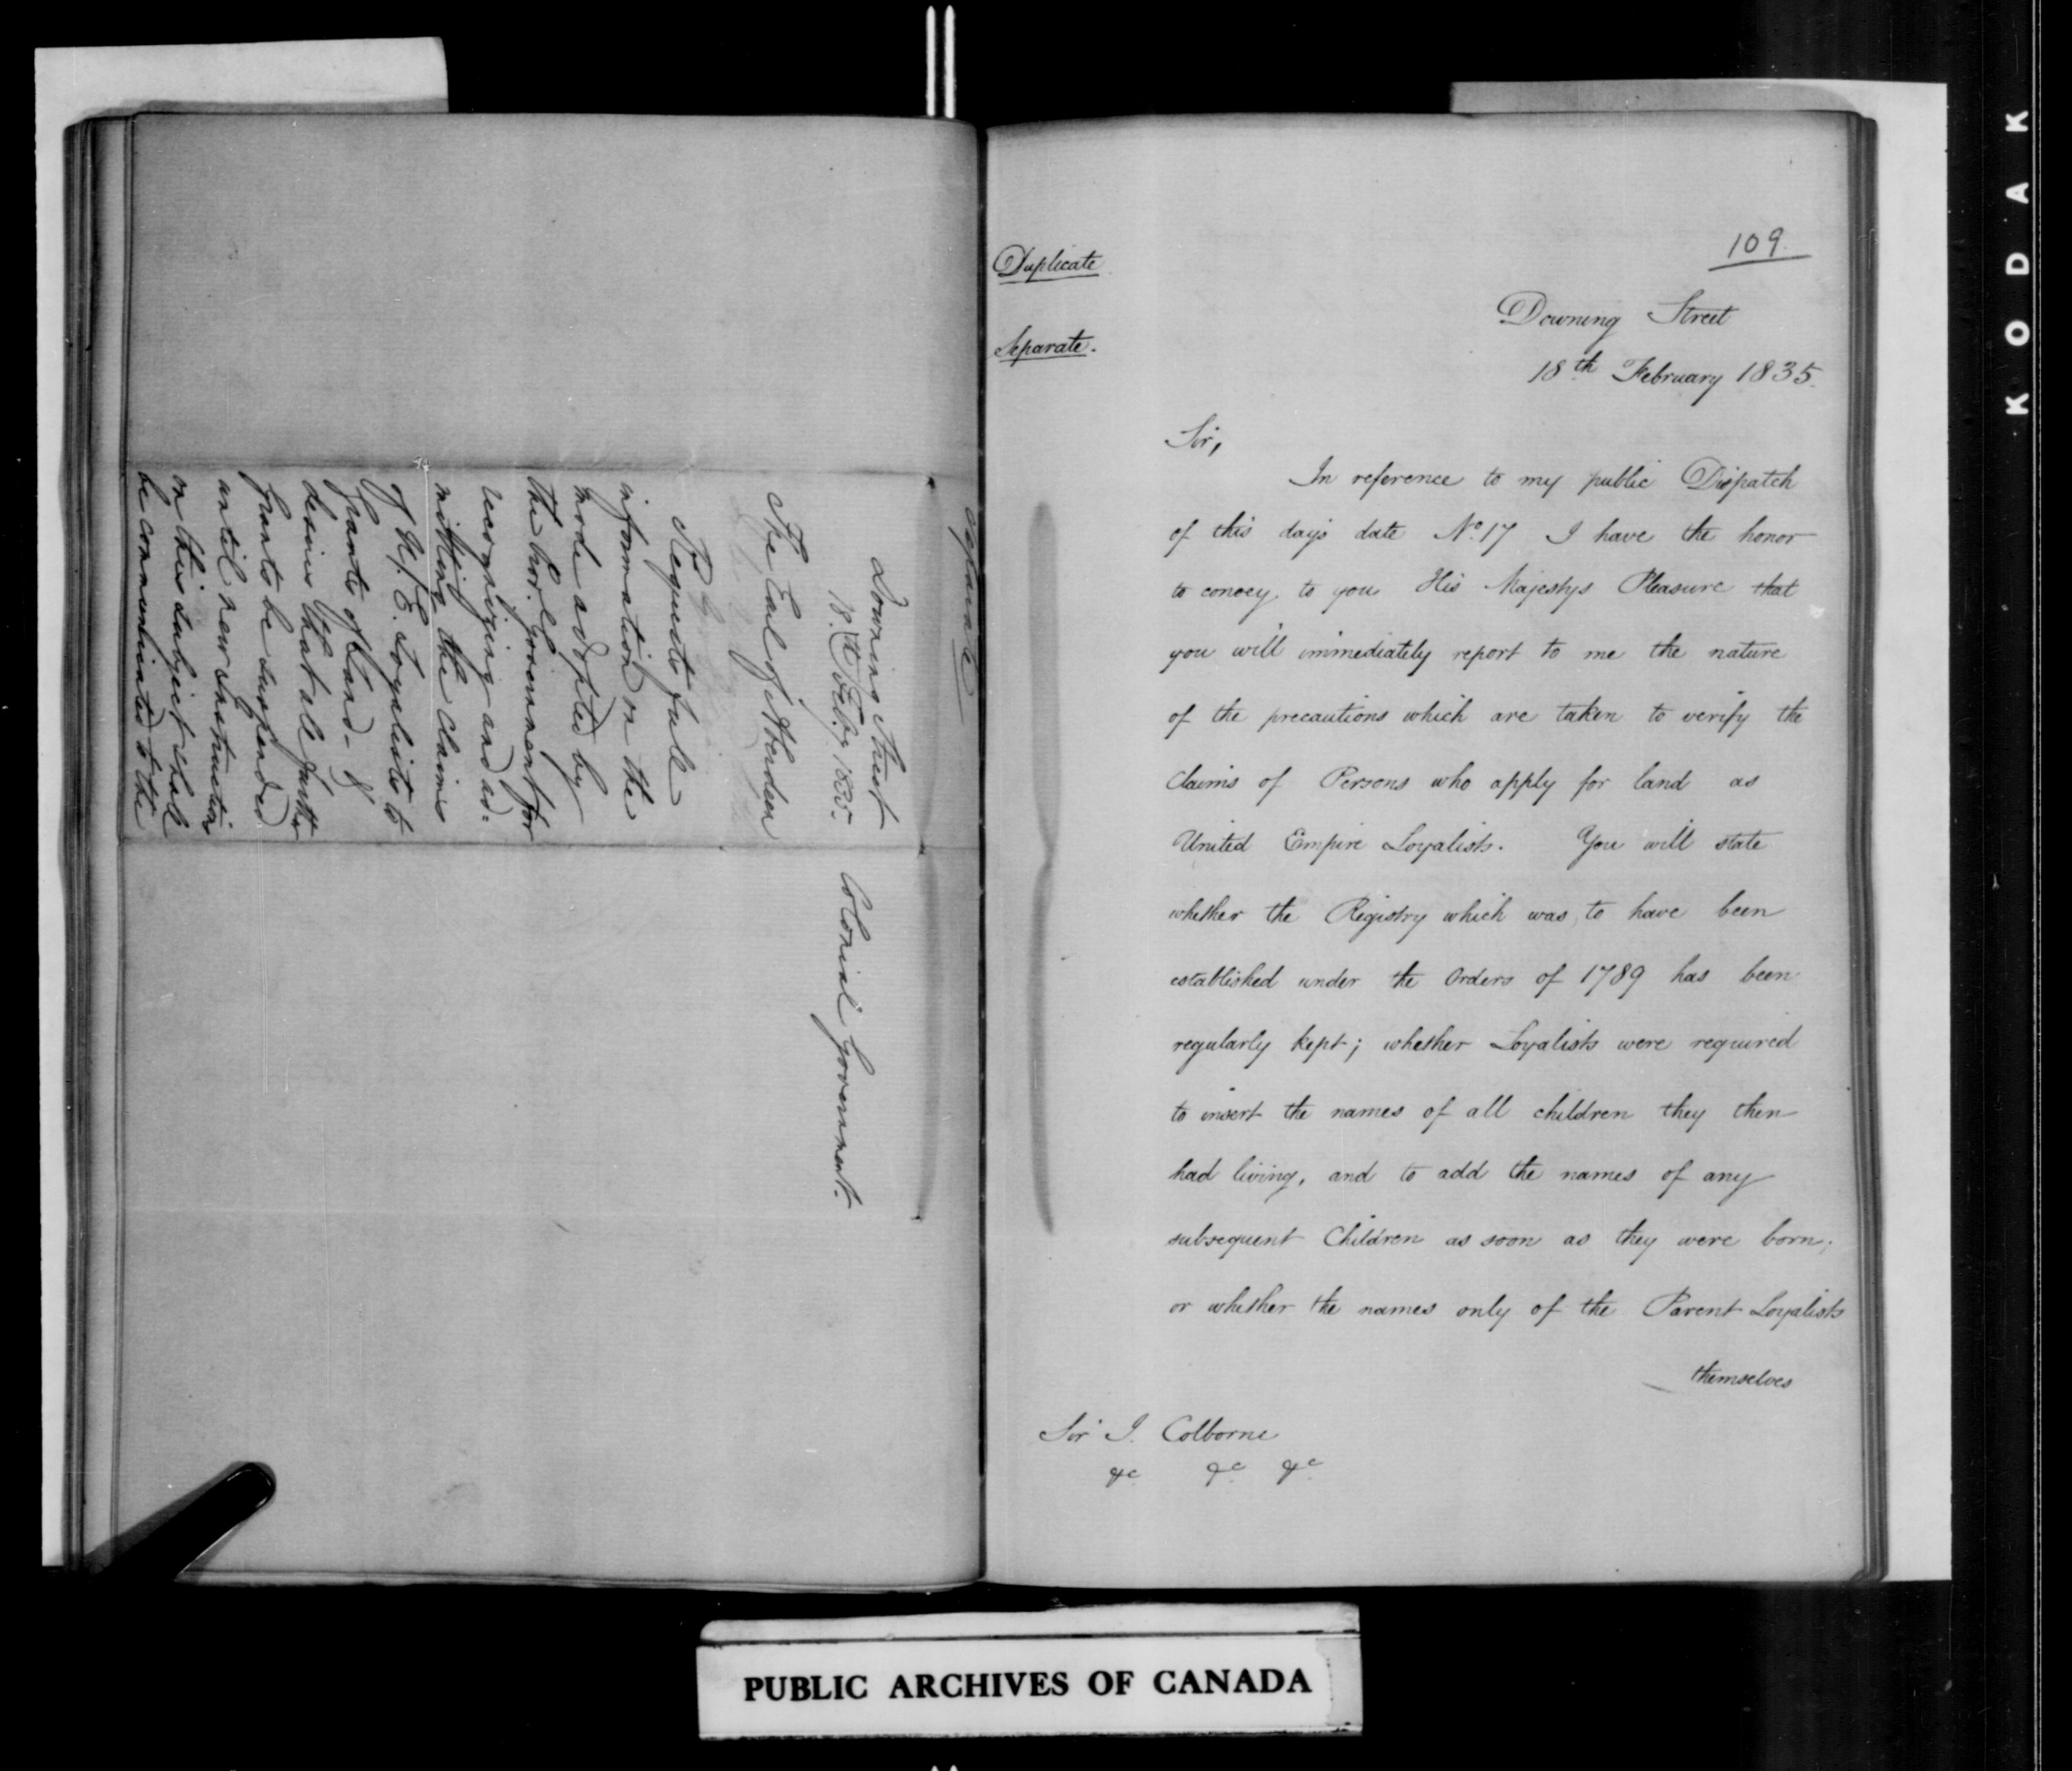 Separate
Downing Street
18th Feby. 1835.
The Earl of Aberdeen
Requests full
information on the
mode adopted by
the Col. government for
recognizing and ad-
mitting the claims
of U. E. Loyalists to
grants of land - &
desires that all further
grants be suspended
until new instructions
on this subject shall
be communicated to the
Colonial government.
109.
Duplicate
Separate.
Downing Street
18th February 1835.
Sir,
In reference to my public Dispatch
of this days date No. 17 I have the honor
to convey to you His Majestys Pleasure that
you will immediately report to me the nature
of the precautions which are taken to verify the
Claims of Persons who apply for land as
United Empire Loyalists. You will state
whether the Registry which was to have been
established under the Orders of 1789 has been
regularly kept; whether Loyalists were required
to insert the names of all children they then
had living, and to add the names of any
subsequent Children as soon as they were born;
or whether the names only of the Parent Loyalists
themselves
Sir J. Colborne
&c &c &c
PUBLIC ARCHIVES OF CANADA
KODAK